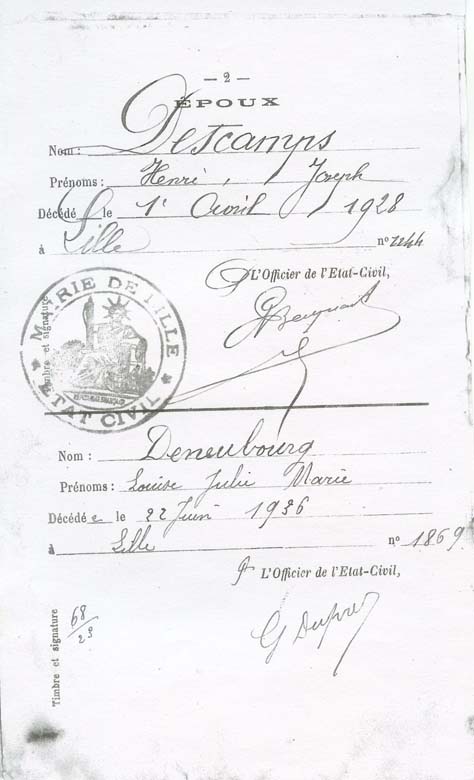 — 2 —
ÉPOUX
Nom : Descamps
Prénoms : Henri, Joseph
Décédé le 1er Avril 1928
à Lille n° 2244
L'Officier de l'Etat-Civil,
Timbre et signature
MAIRIE DE LILLE
ETAT CIVIL
Nom : Deneubourg
Prénoms : Louise Julie Marie
Décédée le 22 Juin 1936
à Lille n° 1869
L'Officier de l'Etat-Civil,
Timbre et signature
68/29
G Dupré